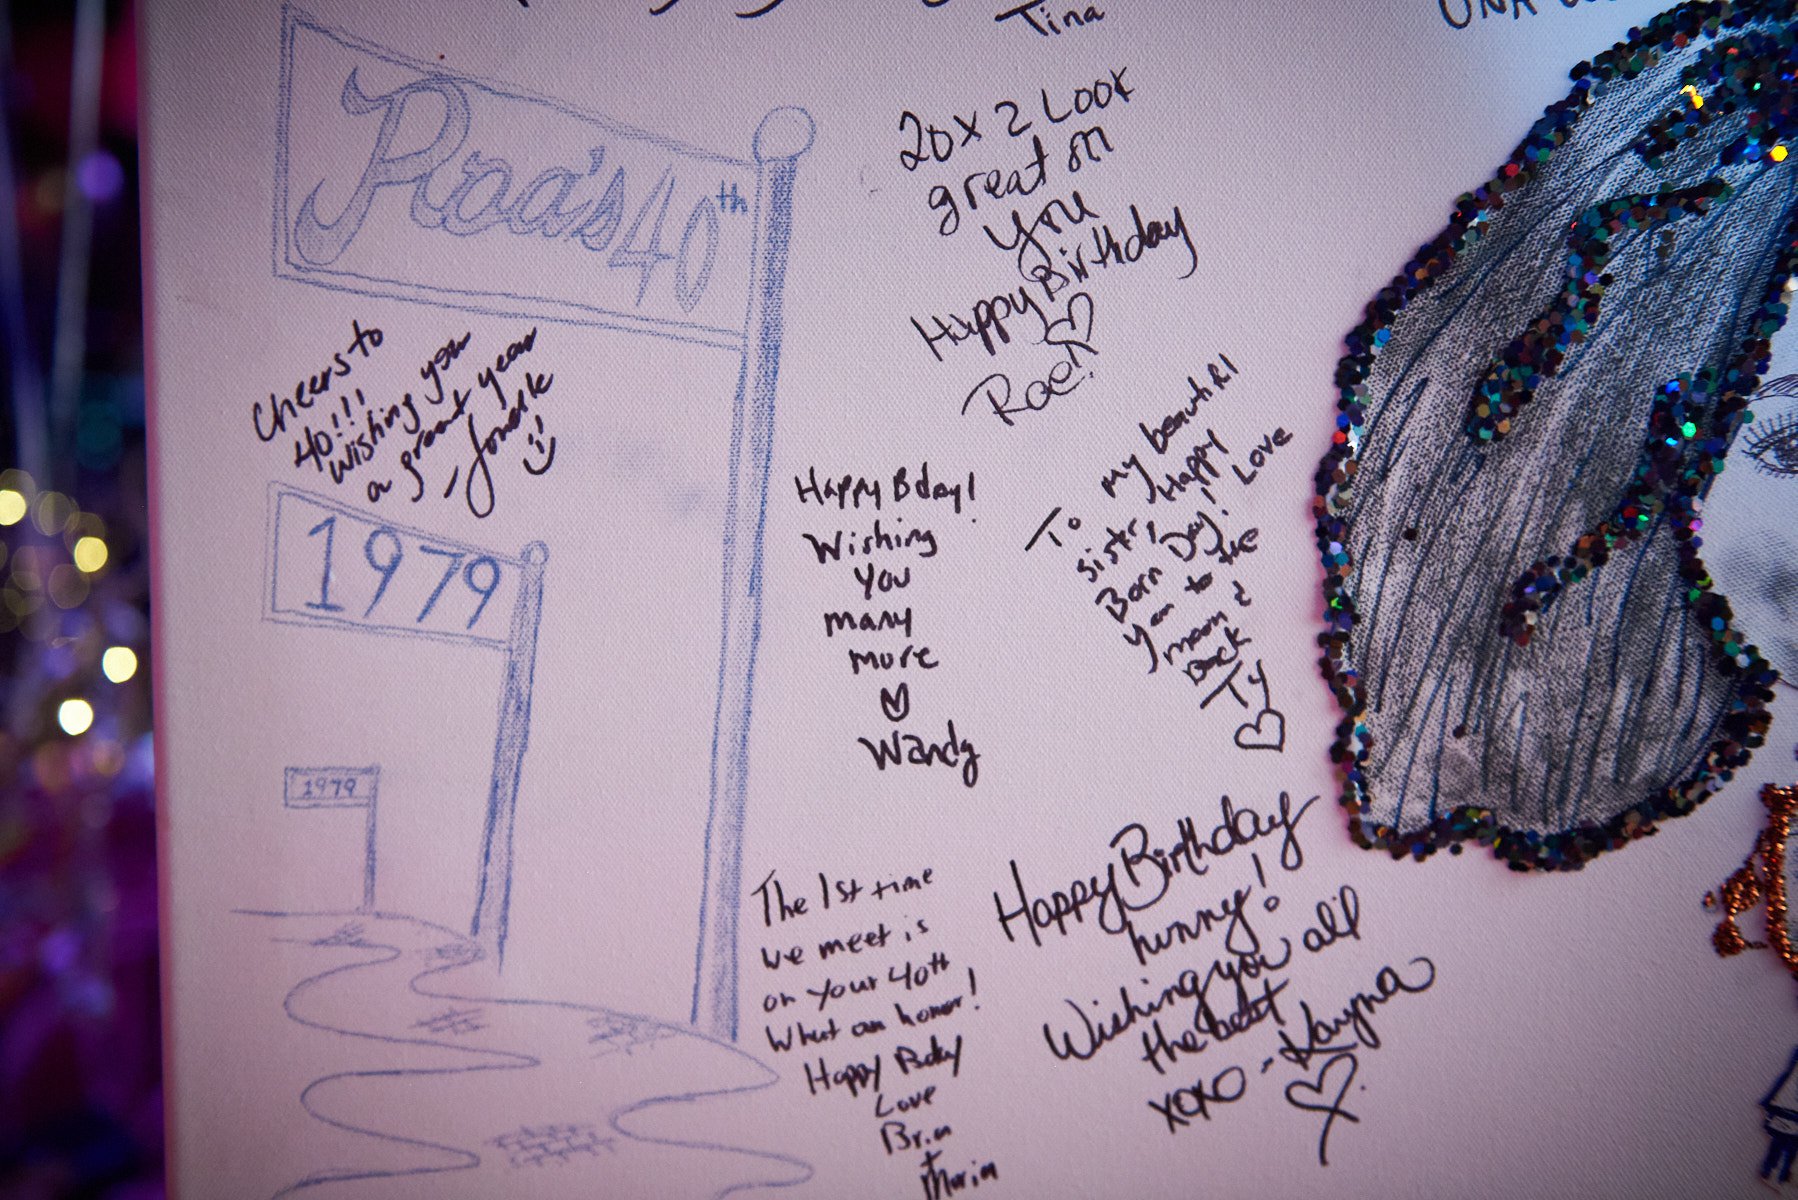 Tina
UNA
Roa's 40th
20x2 Look
great on
you
Happy Birthday
Rae!
Cheers to
40!!!
Wishing you
a great year
1979
To my beautiful
sister, Happy
Born Day! Love
you to the
moon &
Back
Ty
Happy Bday!
Wishing
You
many
more
Wandy
1979
Happy Birthday
hunny!
Wishing you all
the best
xoxo - Kayna
The 1st time
we meet is
on your 40th
What an honor!
Happy Bday
Love
Bria
+
Maria